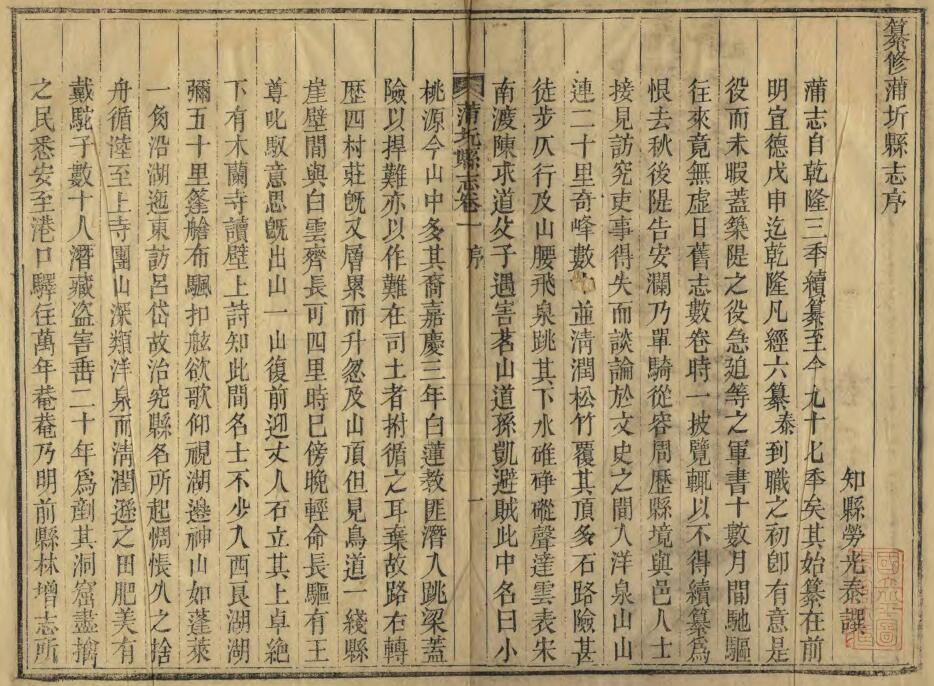 纂修蒲圻縣志序
知縣勞光泰譔
蒲志自乾隆三季續纂至今九十七季矣其始纂在前
明宣德戊申迄乾隆凡經六纂泰到職之初卽有意是
役而未暇蓋築隄之役急廹等之軍書十數月間馳驅
往來竟無虚日舊志數卷時一披覽輒以不得續纂爲
恨去秋後隄告安瀾乃單騎從容周歷縣境與邑人士
接見訪究吏事得失而談論於文史之間入洋泉山山
連二十里奇峰數 並淸潤松竹覆其頂多石路險甚
徒步仄行及山腰飛泉跳其下水碓砰磫聲達雲表宋
南渡陳求道父子遇害茗山道孫凱避賊此中名曰小
蒲圻縣志卷一 序 一
桃源今山中多其裔嘉慶三年白蓮教匪潛入跳梁蓋
險以捍難亦以作難在司土者拊循之耳棄故路右轉
歷四村莊旣又層累而升忽及山頂但見鳥道一綫縣
崖壁間與白雲齊長可四里時已傍晚輕命長驅有王
尊叱馭意思旣出山一山復前迎丈人石立其上卓絶
下有木蘭寺讀壁上詩知此間名士不少入西良湖湖
彌五十里篷艙布颿扣舷欲歌仰視湖邊神山如蓬萊
一角沿湖迤東訪呂岱故治究縣名所起惆悵久之捨
舟循陸至上寺團山深類洋泉而淸潤遜之田肥美有
戴駝子數十人潛藏盜害垂二十年爲剷其洞窟盡擒
之民悉安至港口驛任萬年菴菴乃明前縣林增志所